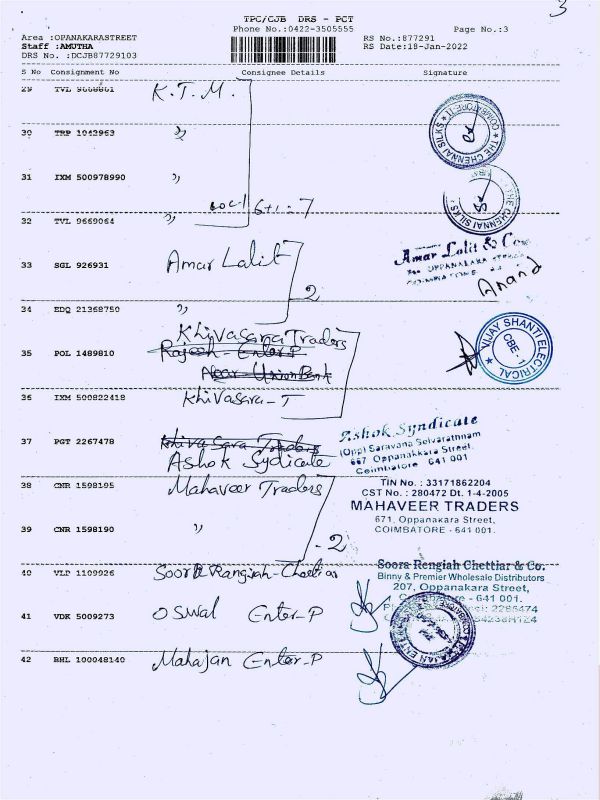 3
TPC/CJB DRS - PCT
Phone No.:0422-3505555
Page No.:3
Area :OPANAKARASTREET
Staff :AMUTHA
DRS No. :DCJB87729103
RS No.:877291
RS Date:18-Jan-2022
S No Consignment No Consignee Details Signature
29 TVL 9668861 K.T.M.
30 TRP 1042963 〃
THE CHENNAI SILKS
31 IXM 500978990 〃
6+1=7
THE CHENNAI SILKS
32 TVL 9669064 〃
33 SGL 926931 Amar Lalit
2
Amar Lalit & Co.
Anand
34 EDQ 21368750 〃
Khivasara Traders
35 POL 1489810 Rajesh - Enter-P
Near Union Bank
VIJAY SHANTI ELECTRICAL
CBE - 1
36 IXM 500822418 Khivasara - T
37 PGT 2267478 Khiva Sara Traders
Ashok Sydicate
Ashok Syndicate
(Opp) Saravana Selvarathnam
667 Oppanakkara Street,
Coimbatore 641 001
38 CNR 1598185 Mahaveer Traders
TIN No. : 33171862204
CST No. : 280472 Dt. 1-4-2005
MAHAVEER TRADERS
671, Oppanakara Street,
COIMBATORE - 641 001.
39 CNR 1598190 〃
- 2
40 VLP 1109926 Soora Rangiah - Chettiar
Soora Rengiah Chettiar & Co.
Binny & Premier Wholesale Distributors
207, Oppanakara Street,
Coimbatore - 641 001.
41 VDK 5009273 Oswal Enter-P
42 BHL 100048140 Mahajan Enter-P